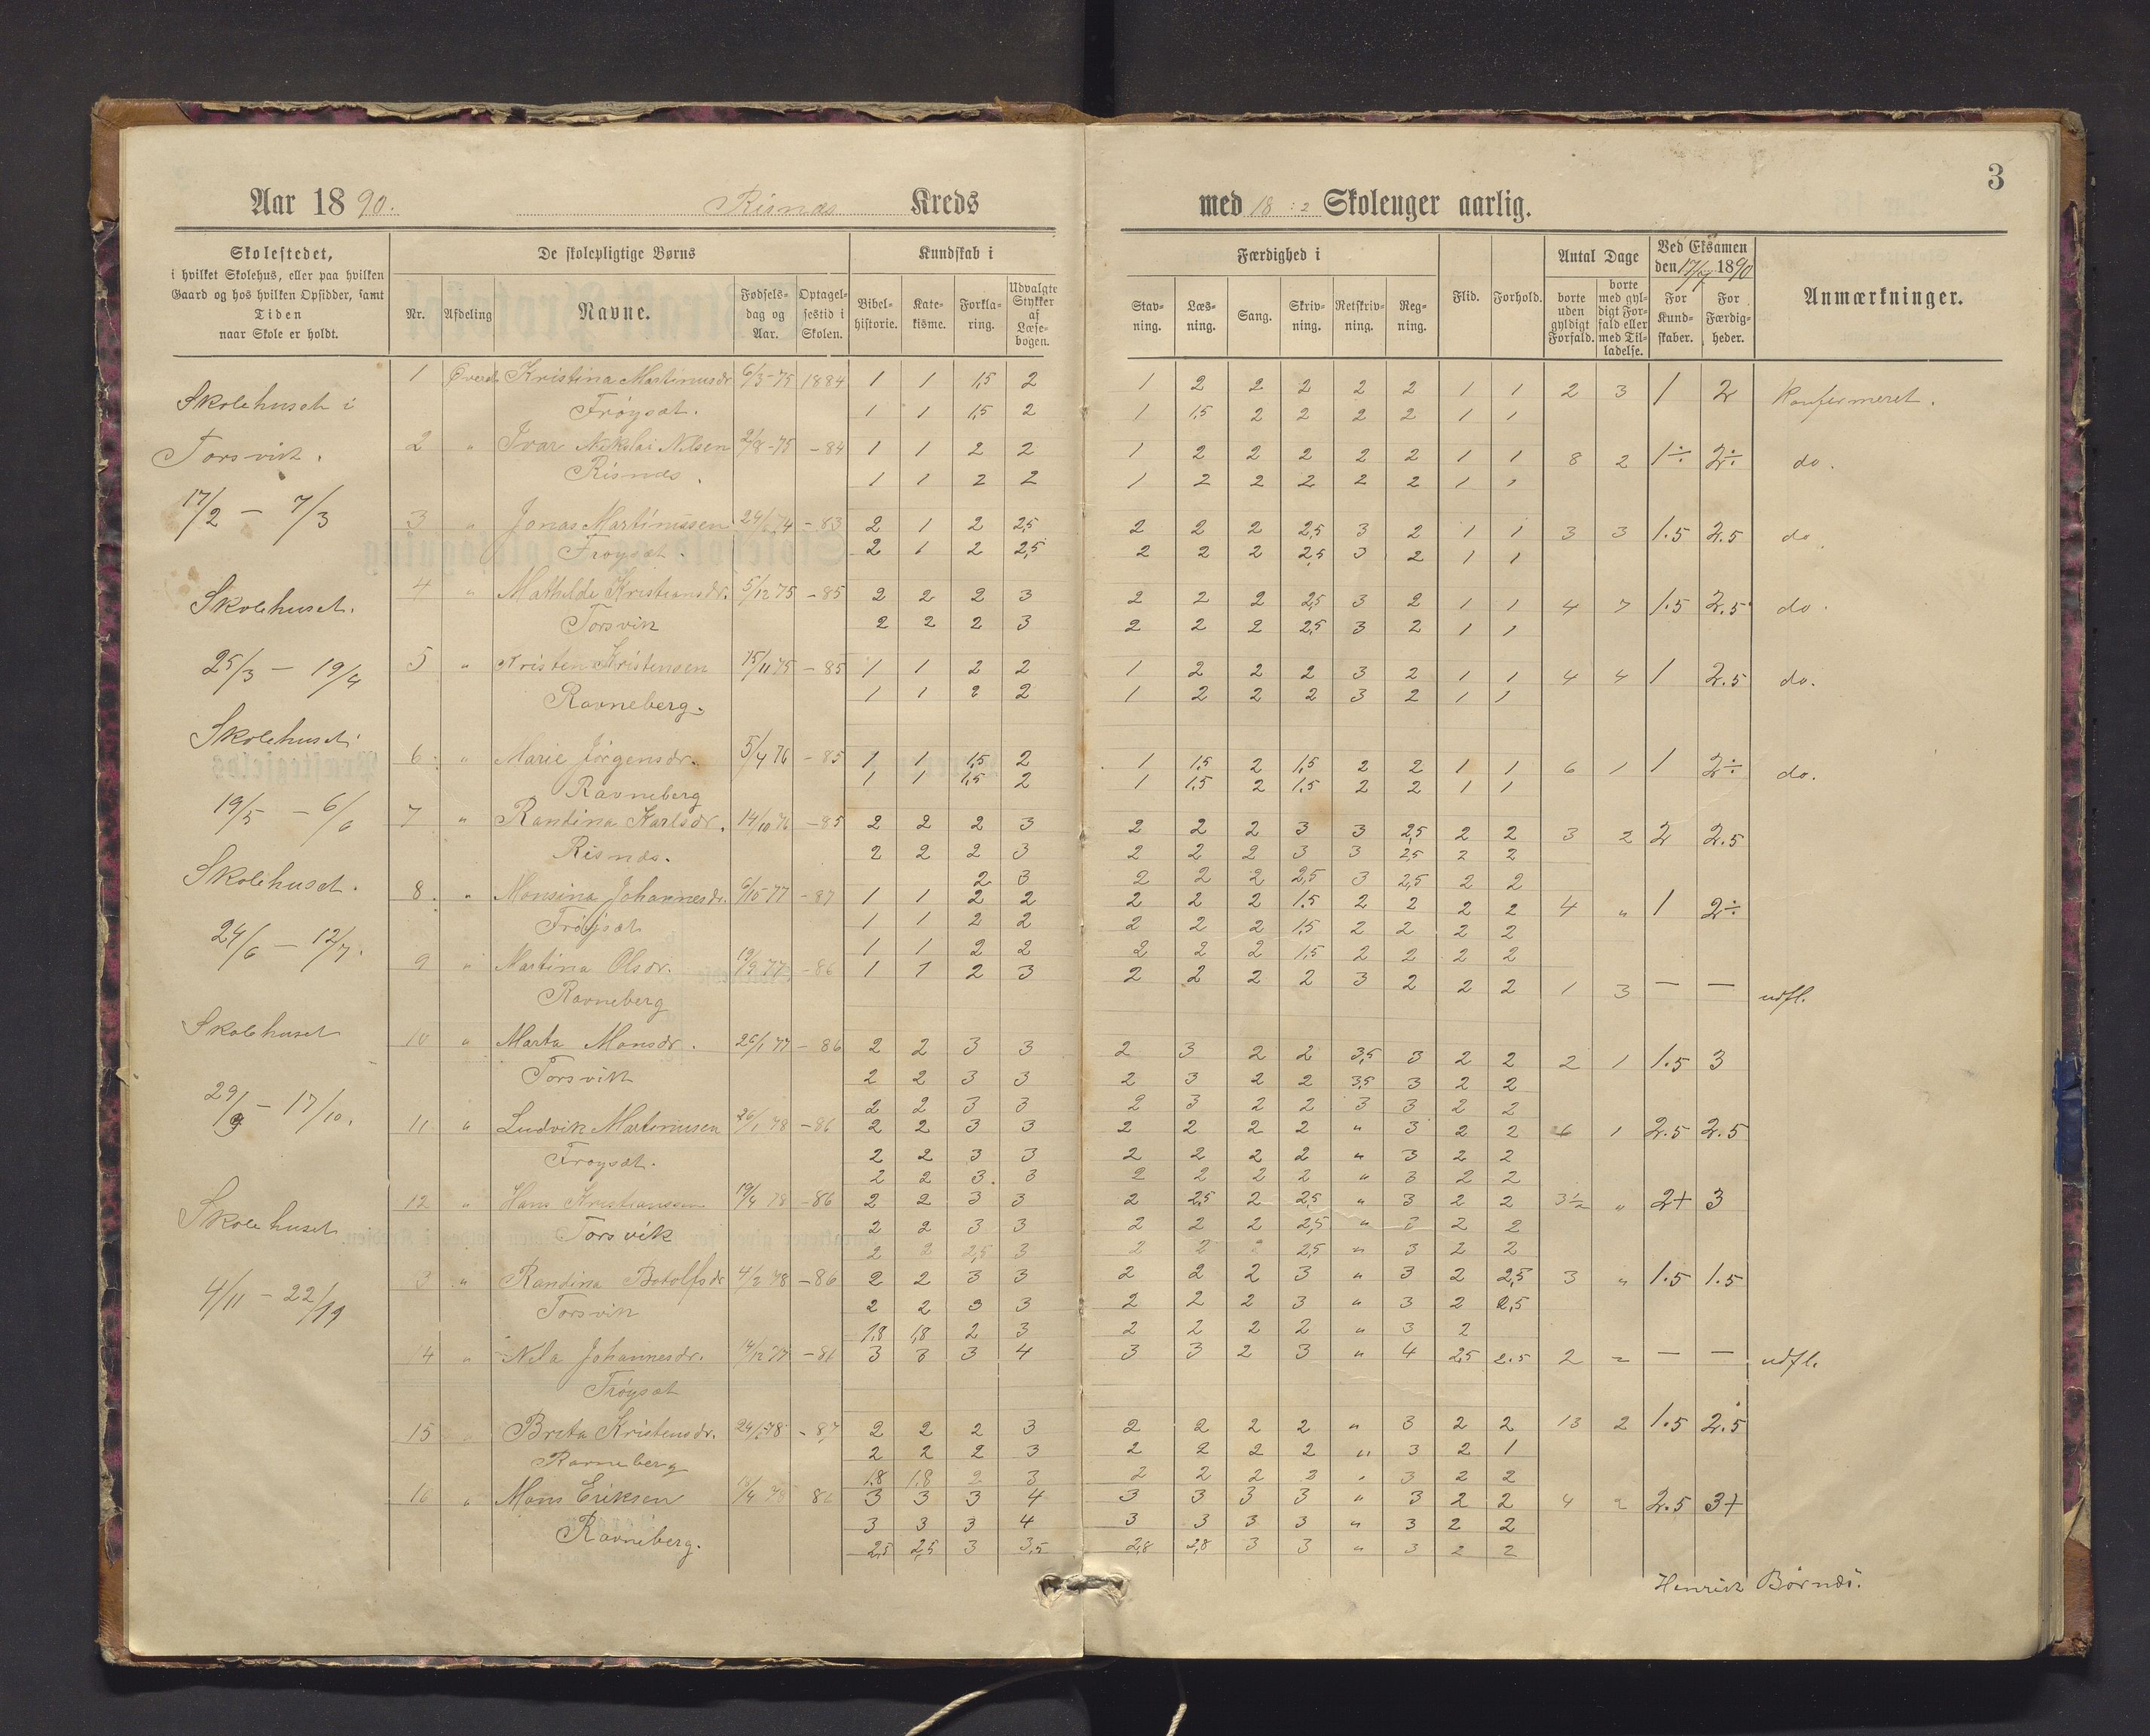 3
Aar 1890. Risnæs Kreds med 18 : 2 Skoleuger aarlig.
Skolestedet,
i hvilket Skolehus, eller paa hvilken
Gaard og hos hvilken Opsidder, samt
Tiden
naar Skole er holdt.
De skolepligtige Børns
Nr. Afdeling Navne. Fødsels-dag og Aar. Optagel-sestid i Skolen.
Kundskab i
Bibel-historie. Kate-kisme. Forkla-ring. Udvalgte Stykker af Læse-bogen.
Færdighed i
Stav-ning. Læs-ning. Sang. Skriv-ning. Retskriv-ning. Reg-ning.
Flid. Forhold.
Antal Dage
borte uden gyldigt Forfald. borte med gyl-digt For-fald eller med Til-ladelse.
Ved Eksamen
den 17/7 1890
For Kund-skaber. For Færdig-heder.
Anmærkninger.
Skolehuset i
Torsvik.
17/2 — 7/3
Skolehuset.
25/3 — 19/4
Skolehuset
19/5 — 6/6
Skolehuset.
24/6 — 12/7.
Skolehuset
29/9 — 17/10.
Skolehuset
4/11 — 22/11
1 Øverste Kristina Martinusdr 6/3-75 1884 1 1 1,5 2 1 2 2 2 2 2 1 1 2 3 1 2 Konfirmeret.
Frøysæt. 1 1 1,5 2 1 1,5 2 2 2 2 1 1
2 " Ivar Nikolai Nilsen 2/8-75 -84 1 1 2 2 1 2 2 2 2 2 1 1 8 2 1÷ 2÷ do.
Risnæs. 1 1 2 2 1 2 2 2 2 2 1 1
3 " Jonas Martinussen 24/6 74 -83 2 1 2 2,5 2 2 2 2,5 3 2 1 1 3 3 1.5 2.5 do
Frøysæt. 2 1 2 2,5 2 2 2 2,5 3 2 1 1
4 " Mathilde Kristiansdr. 5/12 75 -85 2 2 2 3 2 2 2 2,5 3 2 1 1 4 7 1.5 2.5 do.
Torsvik 2 2 2 3 2 2 2 2,5 3 2 1 1
5 " Kristen Kristensen 15/11 75 -85 1 1 2 2 1 2 2 2 3 2 1 1 4 4 1 2.5 do.
Ravneberg. 1 1 2 2 1 2 2 2 3 2 1 1
6 " Marie Jörgensdr. 5/4 76 -85 1 1 1,5 2 1 1,5 2 1,5 2 2 1 1 6 1 1 2÷ do.
Ravneberg 1 1 1,5 2 1 1,5 2 1,5 2 2 1 1
7 " Randina Karlsdr. 14/10 76 -85 2 2 2 3 2 2 2 3 3 2,5 2 2 3 2 2 2.5
Risnæs. 2 2 2 3 2 2 2 3 3 2,5 2 2
2 3 2 2 2 2,5 3 2,5 2 2
8. " Monsina Johannesdr. 6/10 77 -87 1 1 2 2 2 2 2 1,5 2 2 2 2 4 " 1 2÷
Frøysæt 1 1 2 2 2 2 2 1,5 2 2 2 2
1 1 2 2 2 2 2 1,5 2 2 2 2
9 " Martina Olsdr. 19/9 77 -86 1 1 2 3 2 2 2 2 3 2 2 2 1 3 — — udfl.
Ravneberg
10 " Marta Monsdr. 26/1 77 -86 2 2 3 3 2 3 2 2 3,5 3 2 2 2 1 1.5 3
Torsvik 2 2 3 3 2 3 2 2 3,5 3 2 2
2 2 3 3 2 3 2 2 3 3 2 2
11 " Ludvik Martinusen 26/1 78 -86 2 2 3 3 2 2 2 2 " 3 2 2 6 1 2.5 2.5
Frøysæt. 2 2 3 3 2 2 2 2 " 3 2 2
2 2 3 3 2 2 2 2 " 3 2 2
12 " Hans Kristianssen 19/4 78 -86 2 2 3 3 2 2,5 2 2,5 " 3 2 2 3½ " 2+ 3
Torsvik 2 2 3 3 2 2 2 2,5 " 3 2 2
2 2 2,5 3 2 2 2 2,5 " 3 2 2
13 " Randina Botolfsdr 4/2 78 -86 2 2 3 3 2 2 2 3 " 3 2 2,5 3 " 1.5 1.5
Torsvik 2 2 3 3 2 2 2 3 " 3 2 2,5
1,8 1,8 2 3 2 2 2 2 " 3 2
14 " Nila Johannesdr. 14/12 77 -86 3 3 3 4 3 3 2 3 " 4 2,5 2.5 2 — — udfl.
Frøysæt
15 Brita Kristensdr. 24/5 78 -87 2 2 2 3 2 2 2 2 " 3 2 2 13 2 1.5 2.5
Ravneberg 2 2 2 3 2 2 2 2 " 3 2 1
1,8 1,8 2 3 2 2 2 2 " 3 2 2
16 " Mons Eriksen 86 3 3 3 4 3 3 3 3 " 3 2 2 4 2 2.5 3+
Ravneberg. 3 3 3 4 3 3 3 3 " 3 2 2
2,5 2,5 3 3,5 2,8 2,8 3 3 " 3 2 2
Henrik Børnæs.